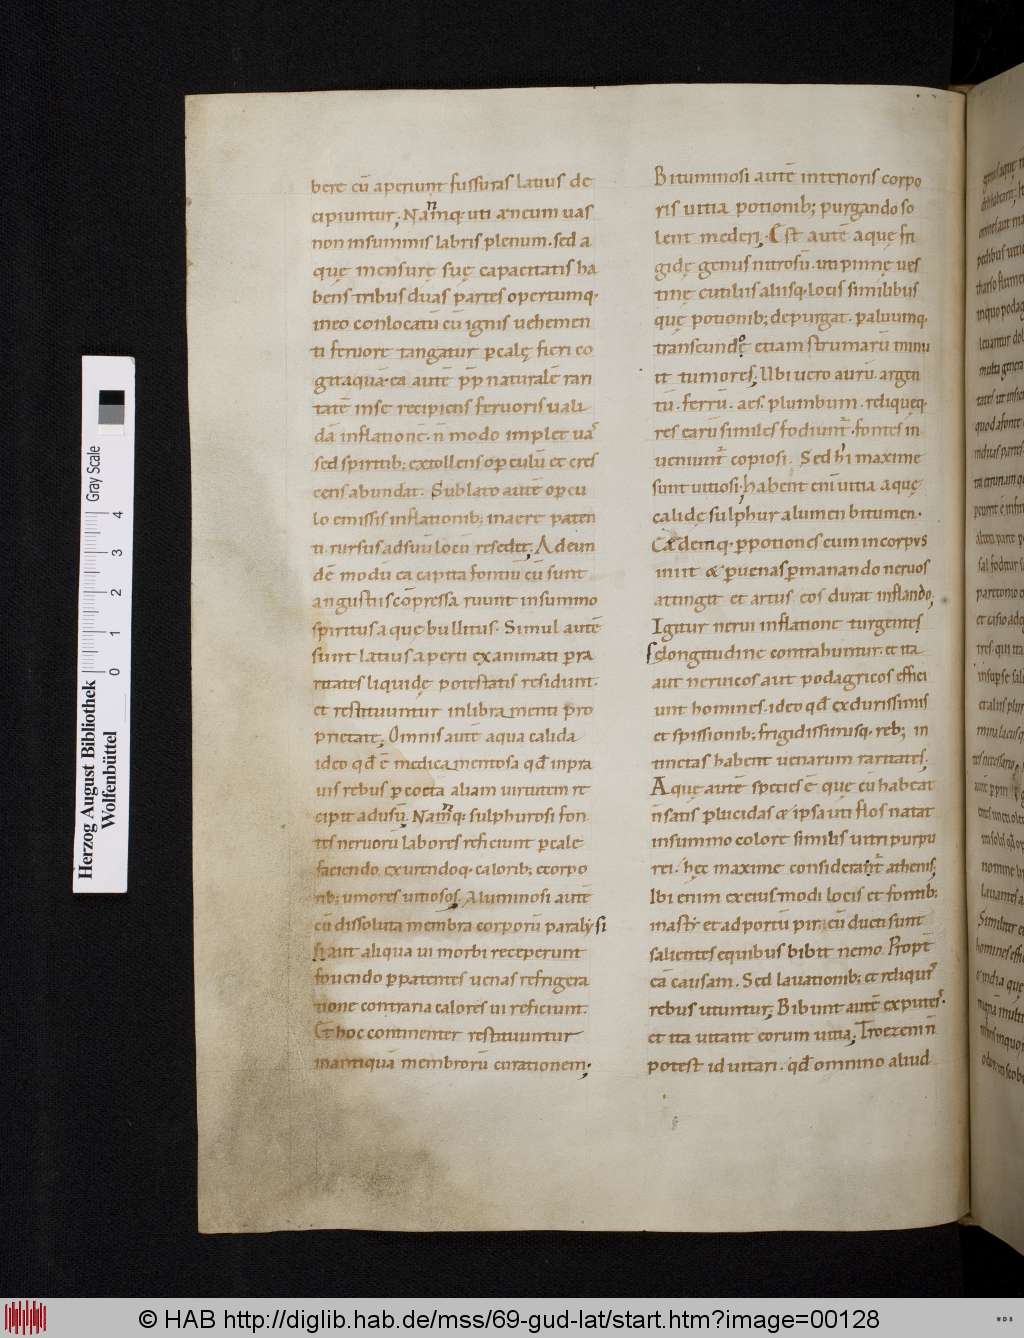 bere cū aperiunt fussuras latius de
cipiuntur; Namq· uti aeneum uas
non insummis labris plenum· sed a
quę mensurę suę capacitatis ha
bens tribus duas partes opertumq·
ineo conlocatū cū ignis uehemen
ti feruore tangatur p calę fieri co
git aquā· ea autē pp naturalē rari
tatē inse recipiens feruoris uali
dā inflationē· n̄ modo implet ua
sed spiritib; extollens opculū et cres
cens abundat. Sublato autē opcu
lo emissis inflationib; inaere paten
ti rursus adsuū locū resedit; Adeun
dē modū ea capita fontiū cū sunt
angustiis cōpressa ruunt insummo
spiritus aquę bullitus· Simul autē
sunt latius aperti exanimati p ra
ritates liquidę potestatis residunt·
et restituuntur inlibramenti pro
prietate; Omnis autē aqua calida
ideo qđ ē medicamentosa qđ inpra
uis rebus p cocta aliam uirtutem re
cipit adusū; Namq· sulphurosi fon
tes neruorū labores reficiunt p cale
faciendo, exurendoq· calorib; ecorpo
rib; umores uitiosos; Aluminosi autē
cū dissoluta membra corporū paralysi
si aut aliqua ui morbi receperunt
fouendo p patentes uenas refrigera
tione contraria calores ui reficiunt·
Et hoc continenter restituuntur
inantiquā membrorū curationem;
Bituminosi autē interioris corpo
ris uitia potionib; purgando so
lent mederi; Est autē aquę fri
gidę genus nitrosū· uti pinnę ues
tinę cutiliis aliisq· locis similibus
quę potionib; depurgat· p aluumq·
transeundo etiam strumarū minu
it tumores; Ubi uero aurū· argen
tū· ferrū· aes· plumbum· reliqueq·
res earū similes fodiunt· fontes in
ueniunt copiosi· Sed hi maxime
sunt uitiosi; habent eni uitia aquę
calidę sulphur alumen bitumen·
Eademq· p potiones cum incorpus
iniit & p uenas pmanando neruos
attingit et artus eos durat inflando;
Igitur nerui inflatione turgentes
elongitudine contrahuntur· et ita
aut neruicos aut podagricos effici
unt homines· ideo qđ ex durissimis
et spissionib; frigidissimisq· reb; in
tinctas habent uenarum raritates;
Aquę autē species ē quę cū habeat
n̄ satis plucidas & ipsa uti flos natat
insummo colore similis uitri purpu
rei· hęc maxime considerant athenis;
Ibi enim ex eiusmodi locis et fontib;
inasty et ad portū pir cū ducti sunt
salientes equibus bibit nemo Propt
eā causam· Sed lauationib; et reliquis
rebus utuntur; Bibunt autē ex puteis·
et ita uitant eorum uitia; Troezeni n̄
potest id uitari· qđ omnino aliud
Herzog August Bibliothek
Wolfenbüttel
0 1 2 3 4
Gray Scale
© HAB http://diglib.hab.de/mss/69-gud-lat/start.htm?image=00128